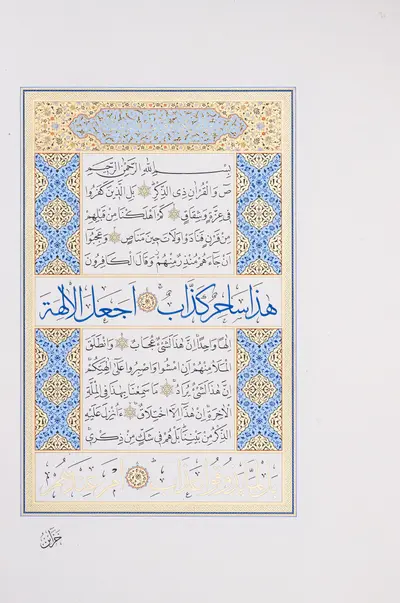 بِسْمِ اللهِ الرَّحْمٰنِ الرَّحِيمِ
صٓ وَالْقُرْاٰنِ ذِي الذِّكْرِ بَلِ الَّذِينَ كَفَرُوا
فِي عِزَّةٍ وَشِقَاقٍ كَمْ اَهْلَكْنَا مِنْ قَبْلِهِمْ
مِنْ قَرْنٍ فَنَادَوْا وَلَاتَ حِينَ مَنَاصٍ وَعَجِبُوا
اَنْ جَاءَهُمْ مُنْذِرٌ مِنْهُمْ وَقَالَ الْكَافِرُونَ
هٰذَا سَاحِرٌ كَذَّابٌ اَجَعَلَ الْاٰلِهَةَ
اِلٰهًا وَاحِدًا اِنَّ هٰذَا لَشَيْءٌ عُجَابٌ وَانْطَلَقَ
الْمَلَاُ مِنْهُمْ اَنِ امْشُوا وَاصْبِرُوا عَلٰى اٰلِهَتِكُمْ
اِنَّ هٰذَا لَشَيْءٌ يُرَادُ مَا سَمِعْنَا بِهٰذَا فِي الْمِلَّةِ
الْاٰخِرَةِ اِنْ هٰذَا اِلَّا اخْتِلَاقٌ ءَاُنْزِلَ عَلَيْهِ
الذِّكْرُ مِنْ بَيْنِنَا بَلْ هُمْ فِي شَكٍّ مِنْ ذِكْرِي
خَزَائِنُ